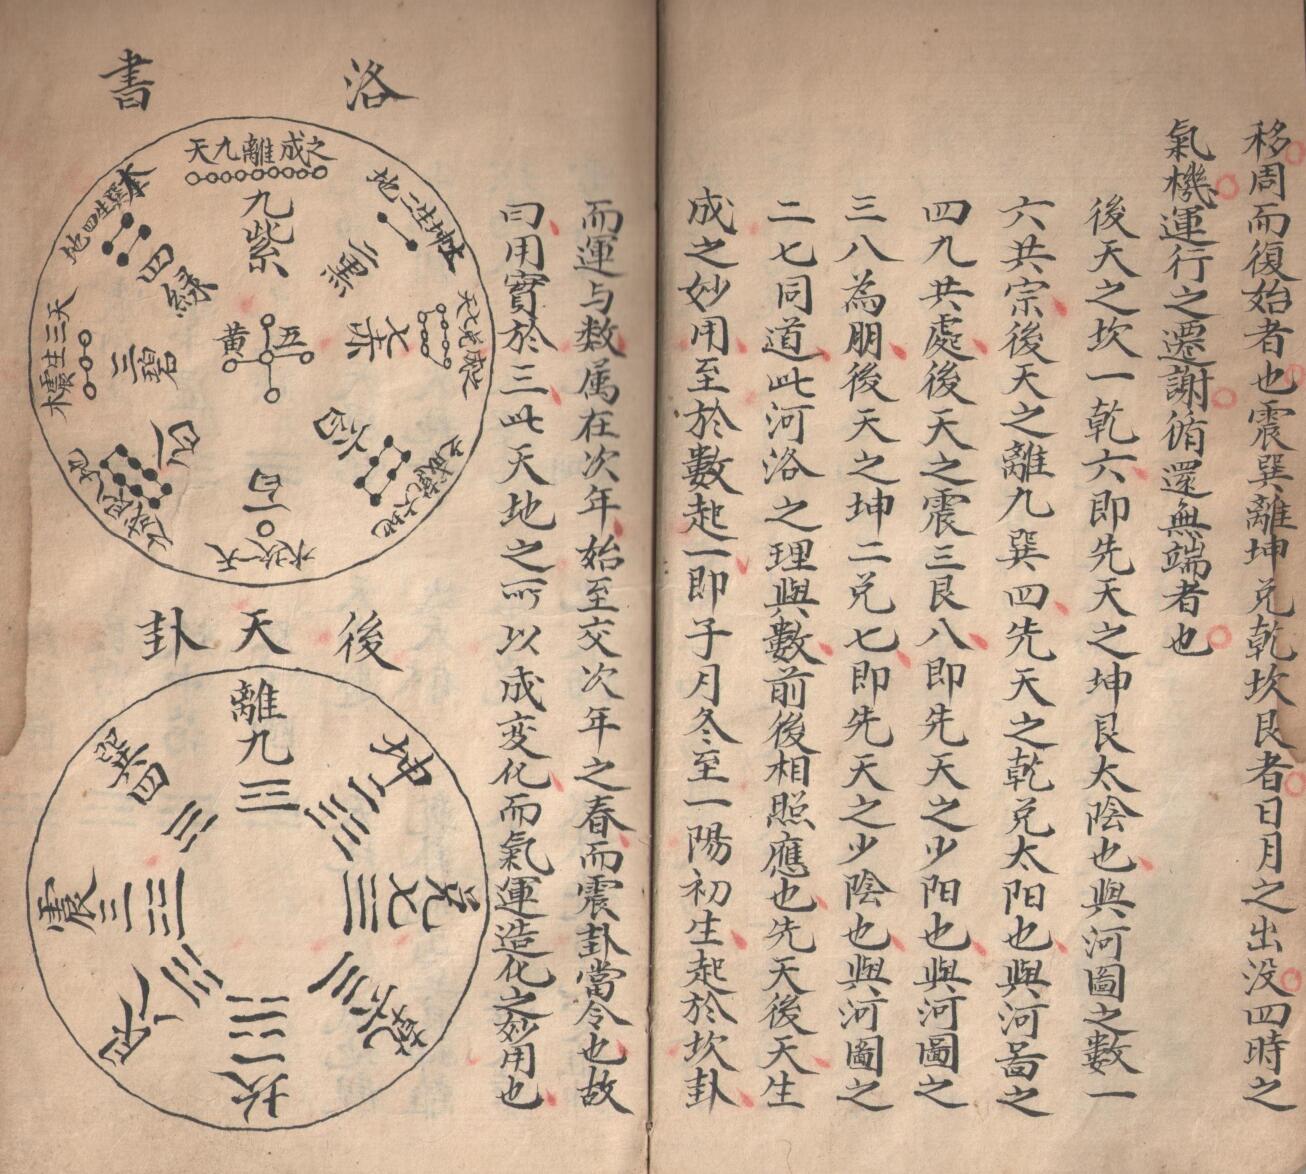 移周而復始者也震巽離坤兑乾坎艮者日月之出没四時之
氣機運行之遷謝循還無端者也
後天之坎一乾六即先天之坤艮太陰也與河圖之數一
六共宗後天之離九巽四先天之乾兑太阳也與河啚之
四九共處後天之震三艮八即先天之少阳也與河圖之
三八為朋後天之坤二兑七即先天之少陰也與河圖之
二七同道此河洛之理與數前後相照應也先天後天生
成之妙用至於數起一即子月冬至一陽初生起於坎卦
而運与数属在次年始至交次年之春而震卦當令也故
曰用實於三此天地之所以成变化而氣運造化之妙用也
洛書
天九離成之
九紫
地二生坤
二黑
七赤
地四生巽木
四緑
天三生震木
三碧
五黄
一白
天一坎水
後天卦
離九
坤二
兑七
乾六
坎一
艮八
震三
巽四